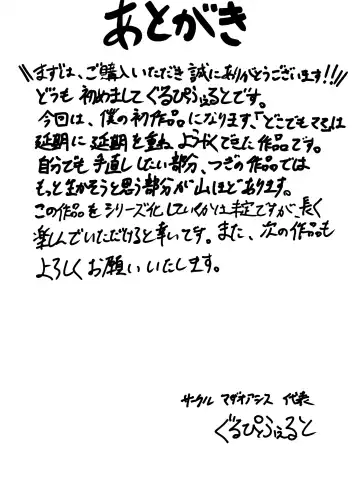 あとがき
\\まずは、ご購入いただき誠にありがとうございます!!//
どうも初めましてぐるぴふぇるとです。
今回は、僕の初作品になります、「どこでもてるは
延期に延期を重ねようやくできた作品です。
自分でも手直ししたい部分、つぎの作品では
もっと生かそうと思う部分が山ほどあります。
この作品をシリーズ化していくかは未定ですが、長く
楽しんでいただけると幸いです。また、次の作品も
よろしくお願いいたします。
サークル マダオアシス 代表
ぐるぴふぇると